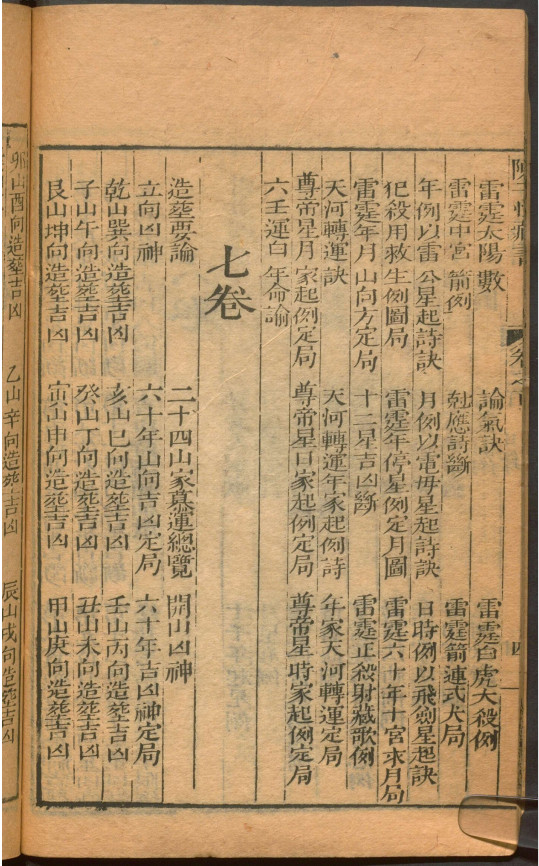 雷霆太陽數　論氣訣　雷霆白虎大殺例
雷霆中宮箭例　尅應詩斷　雷霆箭連式犬局
年例以雷公星起詩訣　月例以電毋星起詩訣　日時例以飛劍星起訣
犯殺用救生例圖局　雷霆年停星例定月圖　雷霆六十年十宮求月局
雷霆年月山向方定局　十二星吉凶斷　雷霆正殺財藏歌例
天河轉運訣　天河轉運年家起例詩　年家天河轉運定局
尊帝星月家起例定局　尊帝星日家起例定局　尊帝星時家起例定局
六壬運白年命論
七卷
造塟要論　二十四山家真運總覽　開山凶神
立向凶神　六十年山向吉凶定局　六十年吉凶神定局
乾山巽向造塟吉凶　亥山巳向造塟吉凶　壬山丙向造塟吉凶
子山午向造塟吉凶　癸山丁向造塟吉凶　丑山未向造塟吉凶
艮山坤向造塟吉凶　寅山申向造塟吉凶　甲山庚向造塟吉凶
卯山酉向造塟吉凶　乙山辛向造塟吉凶　辰山戌向造塟吉凶